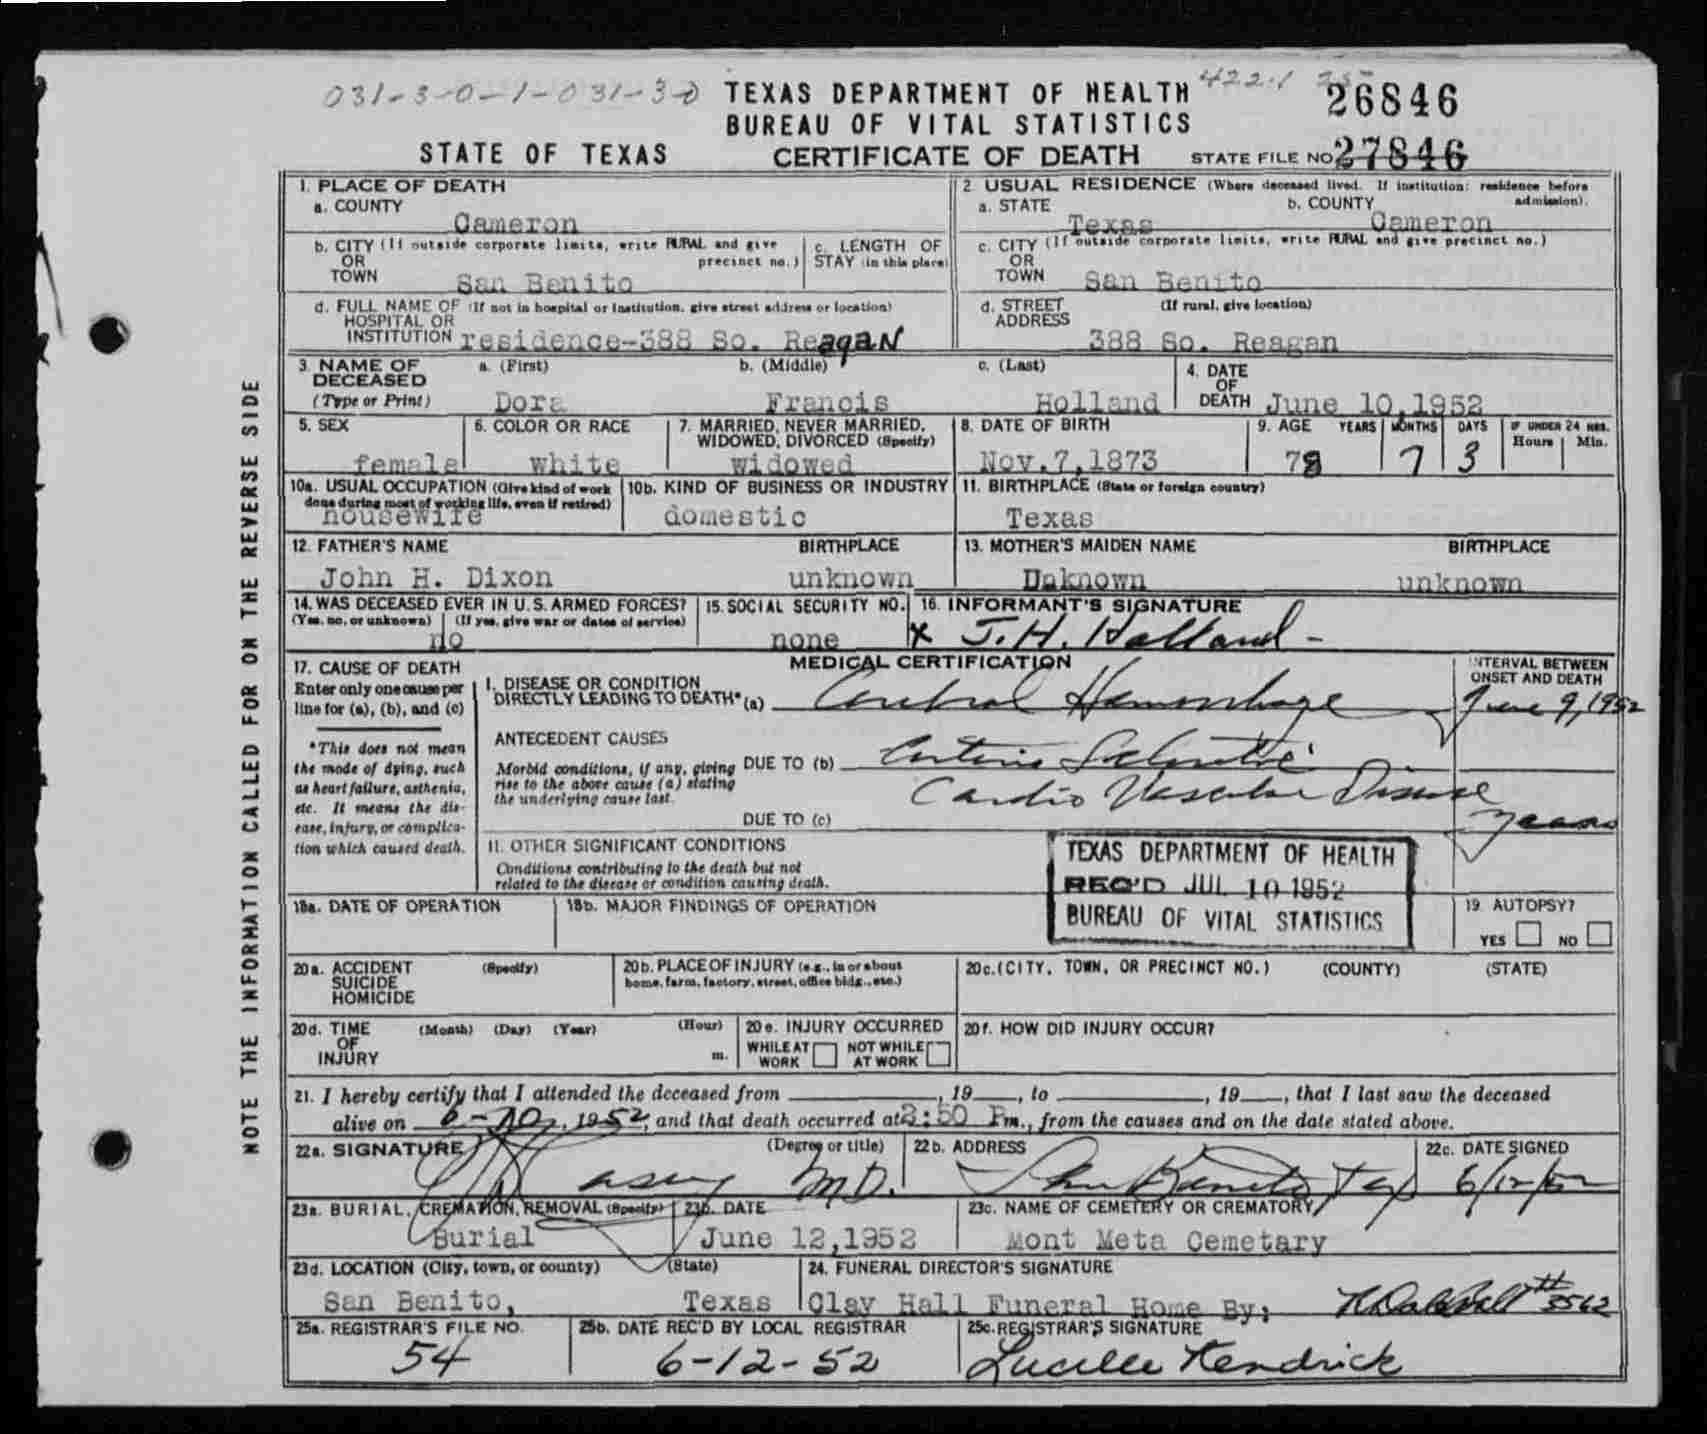 031-3-0-1-031-3-0 TEXAS DEPARTMENT OF HEALTH 422.1 26846
BUREAU OF VITAL STATISTICS
STATE OF TEXAS CERTIFICATE OF DEATH STATE FILE NO. 27846
1. PLACE OF DEATH
a. COUNTY
Cameron
2. USUAL RESIDENCE (Where deceased lived. If institution: residence before admission).
a. STATE b. COUNTY
Texas Cameron
b. CITY (If outside corporate limits, write RURAL and give precinct no.)
OR
TOWN San Benito
c. LENGTH OF
STAY (in this place)
c. CITY (If outside corporate limits, write RURAL and give precinct no.)
OR
TOWN San Benito
d. FULL NAME OF (If not in hospital or institution, give street address or location)
HOSPITAL OR
INSTITUTION residence-388 So. Reagan
d. STREET (If rural, give location)
ADDRESS
388 So. Reagan
3. NAME OF a. (First) b. (Middle) c. (Last)
DECEASED
(Type or Print) Dora Francis Holland
4. DATE
OF
DEATH June 10,1952
5. SEX
female
6. COLOR OR RACE
white
7. MARRIED, NEVER MARRIED,
WIDOWED, DIVORCED (Specify)
widowed
8. DATE OF BIRTH
Nov.7,1873
9. AGE YEARS MONTHS DAYS IF UNDER 24 HRS.
Hours Min.
78 7 3
10a. USUAL OCCUPATION (Give kind of work
done during most of working life, even if retired)
housewife
10b. KIND OF BUSINESS OR INDUSTRY
domestic
11. BIRTHPLACE (State or foreign country)
Texas
12. FATHER'S NAME BIRTHPLACE
John H. Dixon unknown
13. MOTHER'S MAIDEN NAME BIRTHPLACE
Unknown unknown
14. WAS DECEASED EVER IN U.S. ARMED FORCES?
(Yes, no, or unknown) (If yes, give war or dates of service)
no
15. SOCIAL SECURITY NO.
none
16. INFORMANT'S SIGNATURE
x J. H. Holland -
17. CAUSE OF DEATH
Enter only one cause per
line for (a), (b), and (c)
*This does not mean
the mode of dying, such
as heart failure, asthenia,
etc. It means the dis-
ease, injury, or complica-
tion which caused death.
MEDICAL CERTIFICATION
INTERVAL BETWEEN
ONSET AND DEATH
I. DISEASE OR CONDITION
DIRECTLY LEADING TO DEATH* (a) Cerebral Hemorrhage June 9, 1952
ANTECEDENT CAUSES
Morbid conditions, if any, giving
rise to the above cause (a) stating
the underlying cause last.
DUE TO (b) Arterio Sclerotic
Cardio Vascular Disease
DUE TO (c) years
II. OTHER SIGNIFICANT CONDITIONS
Conditions contributing to the death but not
related to the disease or condition causing death.
TEXAS DEPARTMENT OF HEALTH
REC'D JUL 10 1952
BUREAU OF VITAL STATISTICS
18a. DATE OF OPERATION
18b. MAJOR FINDINGS OF OPERATION
19. AUTOPSY?
YES NO
20a. ACCIDENT (Specify)
SUICIDE
HOMICIDE
20b. PLACE OF INJURY (e.g., in or about
home, farm, factory, street, office bldg., etc.)
20c. (CITY, TOWN, OR PRECINCT NO.) (COUNTY) (STATE)
20d. TIME (Month) (Day) (Year) (Hour)
OF
INJURY m.
20e. INJURY OCCURRED
WHILE AT WORK NOT WHILE AT WORK
20f. HOW DID INJURY OCCUR?
21. I hereby certify that I attended the deceased from , 19 , to , 19 , that I last saw the deceased
alive on 6-10, 1952, and that death occurred at :50 Pm., from the causes and on the date stated above.
22a. SIGNATURE (Degree or title)
Casey M.D.
22b. ADDRESS
San Benito Tex
22c. DATE SIGNED
6/12/52
23a. BURIAL, CREMATION, REMOVAL (Specify)
Burial
23b. DATE
June 12,1952
23c. NAME OF CEMETERY OR CREMATORY
Mont Meta Cemetary
23d. LOCATION (City, town, or county) (State)
San Benito, Texas
24. FUNERAL DIRECTOR'S SIGNATURE
Clay Hall Funeral Home By; #3562
25a. REGISTRAR'S FILE NO.
54
25b. DATE REC'D BY LOCAL REGISTRAR
6-12-52
25c. REGISTRAR'S SIGNATURE
Lucille Kendrick
NOTE THE INFORMATION CALLED FOR ON THE REVERSE SIDE